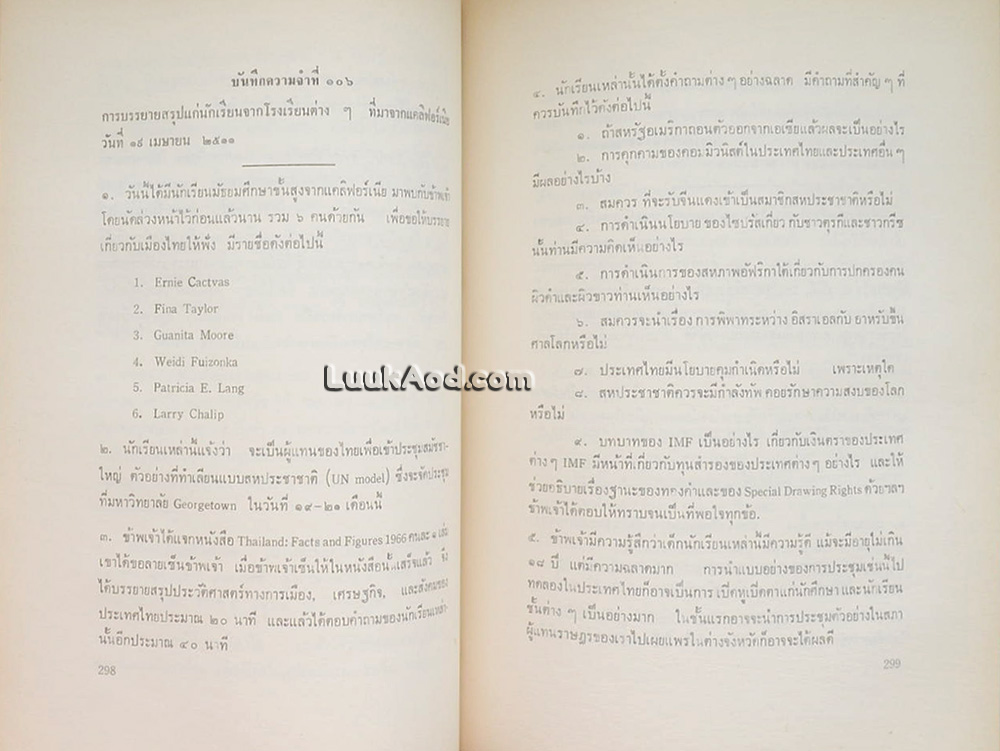 บันทึกความจำที่ ๑๐๖
การบรรยายสรุปแก่นักเรียนจากโรงเรียนต่าง ๆ ที่มาจากแคลิฟอร์เนีย
วันที่ ๑๙ เมษายน ๒๕๑๑
๑. วันนี้ได้มีนักเรียนมัธยมศึกษาชั้นสูงจากแคลิฟอร์เนีย มาพบกับข้าพเจ้า
โดยนัดล่วงหน้าไว้ก่อนแล้วนาน รวม ๖ คนด้วยกัน เพื่อขอให้บรรยาย
เกี่ยวกับเมืองไทยให้ฟัง มีรายชื่อดังต่อไปนี้
1. Ernie Cactvas
2. Fina Taylor
3. Guanita Moore
4. Weidi Fuizonka
5. Patricia E. Lang
6. Larry Chalip
๒. นักเรียนเหล่านี้แจ้งว่า จะเป็นผู้แทนของไทยเพื่อเข้าประชุมสมัชชา-
ใหญ่ ตัวอย่างที่ทำเลียนแบบสหประชาชาติ (UN model) ซึ่งจะจัดประชุม
ที่มหาวิทยาลัย Georgetown ในวันที่ ๑๙-๒๑ เดือนนี้
๓. ข้าพเจ้าได้แจกหนังสือ Thailand: Facts and Figures 1966 คนละ ๑ เล่ม
เขาได้ขอลายเซ็นข้าพเจ้า เมื่อข้าพเจ้าเซ็นให้ในหนังสือนั้นเสร็จแล้ว จึง
ได้บรรยายสรุปประวัติศาสตร์ทางการเมือง, เศรษฐกิจ, และสังคมของ
ประเทศไทยประมาณ ๒๐ นาที และแล้วได้ตอบคำถามของนักเรียนเหล่า-
นั้นอีกประมาณ ๔๐ นาที
298
LuukAod.com
๔. นักเรียนเหล่านั้นได้ตั้งคำถามต่าง ๆ อย่างฉลาด มีคำถามที่สำคัญ ๆ ที่
ควรบันทึกไว้ดังต่อไปนี้
๑. ถ้าสหรัฐอเมริกาถอนตัวออกจากเอเซียแล้วผลจะเป็นอย่างไร
๒. การคุกคามของคอมมิวนิสต์ในประเทศไทยและประเทศอื่น ๆ
มีผลอย่างไรบ้าง
๓. สมควร ที่จะรับจีนแดงเข้าเป็นสมาชิกสหประชาชาติหรือไม่
๔. การดำเนินนโยบาย ของไซปรัสเกี่ยว กับชาวตุรกีและชาวกรีซ
นั้นท่านมีความคิดเห็นอย่างไร
๕. การดำเนินการของสหภาพอัฟริกาใต้เกี่ยวกับการปกครองคน
ผิวดำและผิวขาวท่านเห็นอย่างไร
๖. สมควรจะนำเรื่อง การพิพาทระหว่าง อิสราเอลกับ อาหรับขึ้น
ศาลโลกหรือไม่
๗. ประเทศไทยมีนโยบายคุมกำเนิดหรือไม่ เพราะเหตุใด
๘. สหประชาชาติควรจะมีกำลังทัพ คอยรักษาความสงบของโลก
หรือไม่
๙. บทบาทของ IMF เป็นอย่างไร เกี่ยวกับเงินตราของประเทศ
ต่าง ๆ IMF มีหน้าที่เกี่ยวกับทุนสำรองของประเทศต่าง ๆ อย่างไร และให้
ช่วยอธิบายเรื่องฐานะของทองคำและของ Special Drawing Rights ด้วยฯลฯ
ข้าพเจ้าได้ตอบให้ทราบจนเป็นที่พอใจทุกข้อ.
๕. ข้าพเจ้ามีความรู้สึกว่าเด็กนักเรียนเหล่านี้มีความรู้ดี แม้จะมีอายุไม่เกิน
๑๘ ปี แต่มีความฉลาดมาก การนำแบบอย่างของการประชุมเช่นนี้ไป
ทดลองในประเทศไทยก็อาจจะเป็นการ เปิดหูเปิดตาแก่นักศึกษา และนักเรียน
ชั้นต่าง ๆ เป็นอย่างมาก ในชั้นแรกอาจจะนำการประชุมตัวอย่างในสภา
ผู้แทนราษฎรของเราไปเผยแพร่ในต่างจังหวัดก็อาจจะได้ผลดี
299